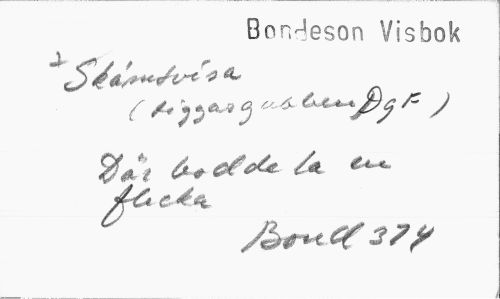 Bondeson Visbok
+ Skämtvisa
(tiggargubben DgF)
Där bodde ta en
flicka
Bond 374